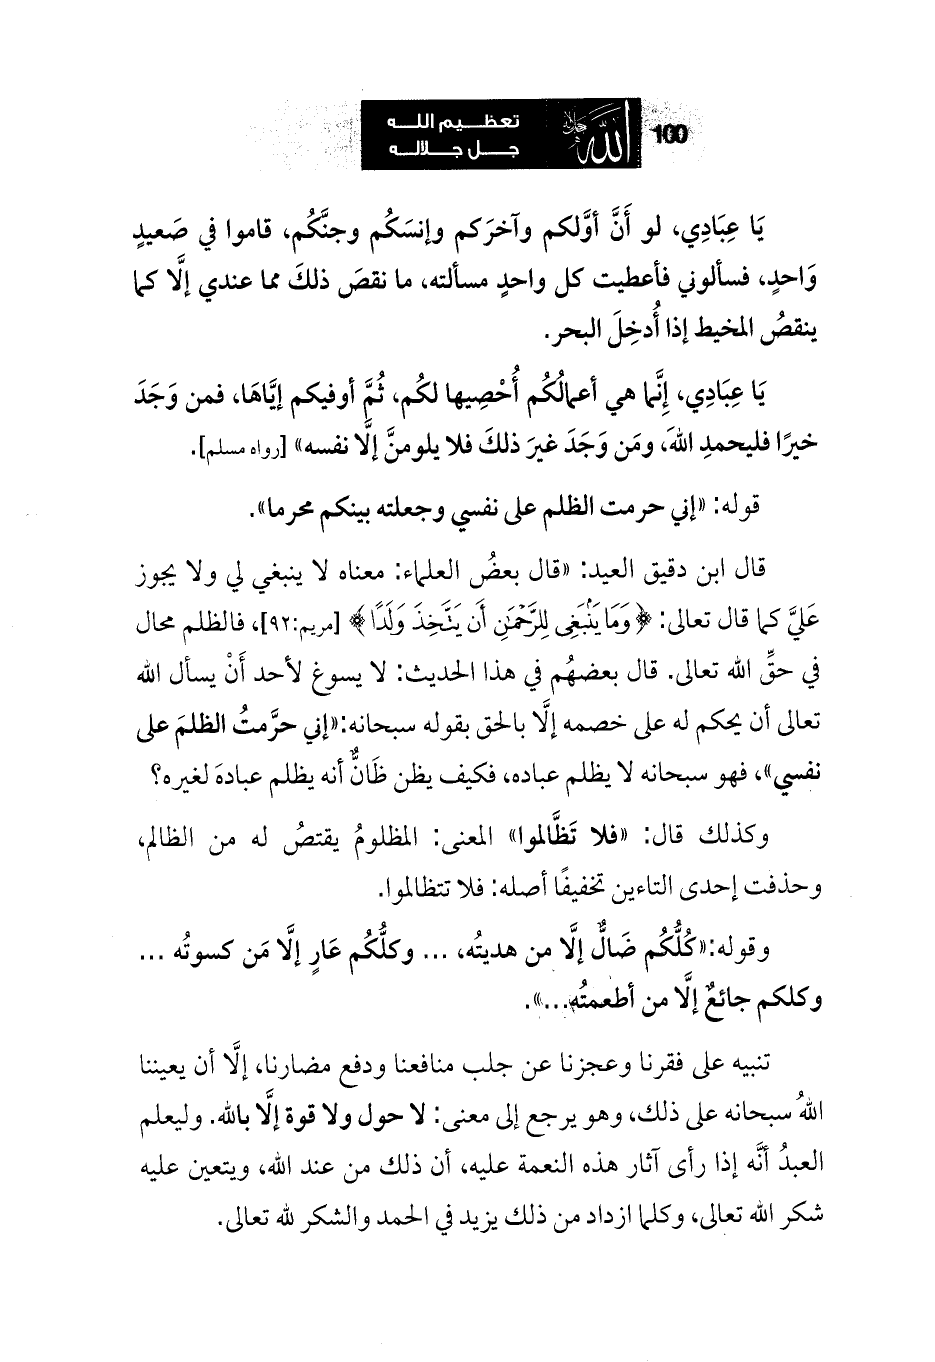 100
الله جل جلاله
تعظيم الله
جل جلاله
يَا عِبَادِي، لو أَنَّ أوَّلكم وآخرَكم وإنسَكُم وجنَّكُم، قاموا في صَعيدٍ
وَاحدٍ، فسألوني فأعطيت كل واحدٍ مسألته، ما نقصَ ذلكَ مما عندي إلَّا كما
ينقصُ المخيط إذا أُدخِلَ البحر.
يَا عِبَادِي، إِنَّما هي أعمالُكُم أُحْصِيها لكُم، ثُمَّ أوفيكم إيَّاهَا، فمن وَجَدَ
خيرًا فليحمدِ اللهَ، ومَن وَجَدَ غيرَ ذلكَ فلا يلومنَّ إلَّا نفسه» [رواه مسلم].
قوله: «إني حرمت الظلم على نفسي وجعلته بينكم محرما».
قال ابن دقيق العيد: «قال بعضُ العلماء: معناه لا ينبغي لي ولا يجوز
عَليَّ كما قال تعالى: ﴿وَمَا يَنۢبَغِى لِلرَّحْمَٰنِ أَن يَتَّخِذَ وَلَدًا﴾ [مريم:٩٢]، فالظلم محال
في حقِّ الله تعالى. قال بعضهُم في هذا الحديث: لا يسوغ لأحد أنْ يسأل الله
تعالى أن يحكم له على خصمه إلَّا بالحق بقوله سبحانه:«إني حرَّمتُ الظلمَ على
نفسي»، فهو سبحانه لا يظلم عباده، فكيف يظن ظَانٌّ أنه يظلم عبادهَ لغيره؟
وكذلك قال: «فلا تَظَّالموا» المعنى: المظلومُ يقتصُ له من الظالم،
وحذفت إحدى التاءين تخفيفًا أصله: فلا تتظالموا.
وقوله:«كُلُّكُم ضَالٌّ إلَّا من هديتُه، ... وكلُّكُم عَارٍ إلَّا مَن كسوتُه ...
وكلكم جائعٌ إلَّا من أطعمتُه...».
تنبيه على فقرنا وعجزنا عن جلب منافعنا ودفع مضارنا، إلَّا أن يعيننا
اللهُ سبحانه على ذلك، وهو يرجع إلى معنى: لا حول ولا قوة إلَّا بالله. وليعلم
العبدُ أنَّه إذا رأى آثار هذه النعمة عليه، أن ذلك من عند الله، ويتعين عليه
شكر الله تعالى، وكلما ازداد من ذلك يزيد في الحمد والشكر لله تعالى.